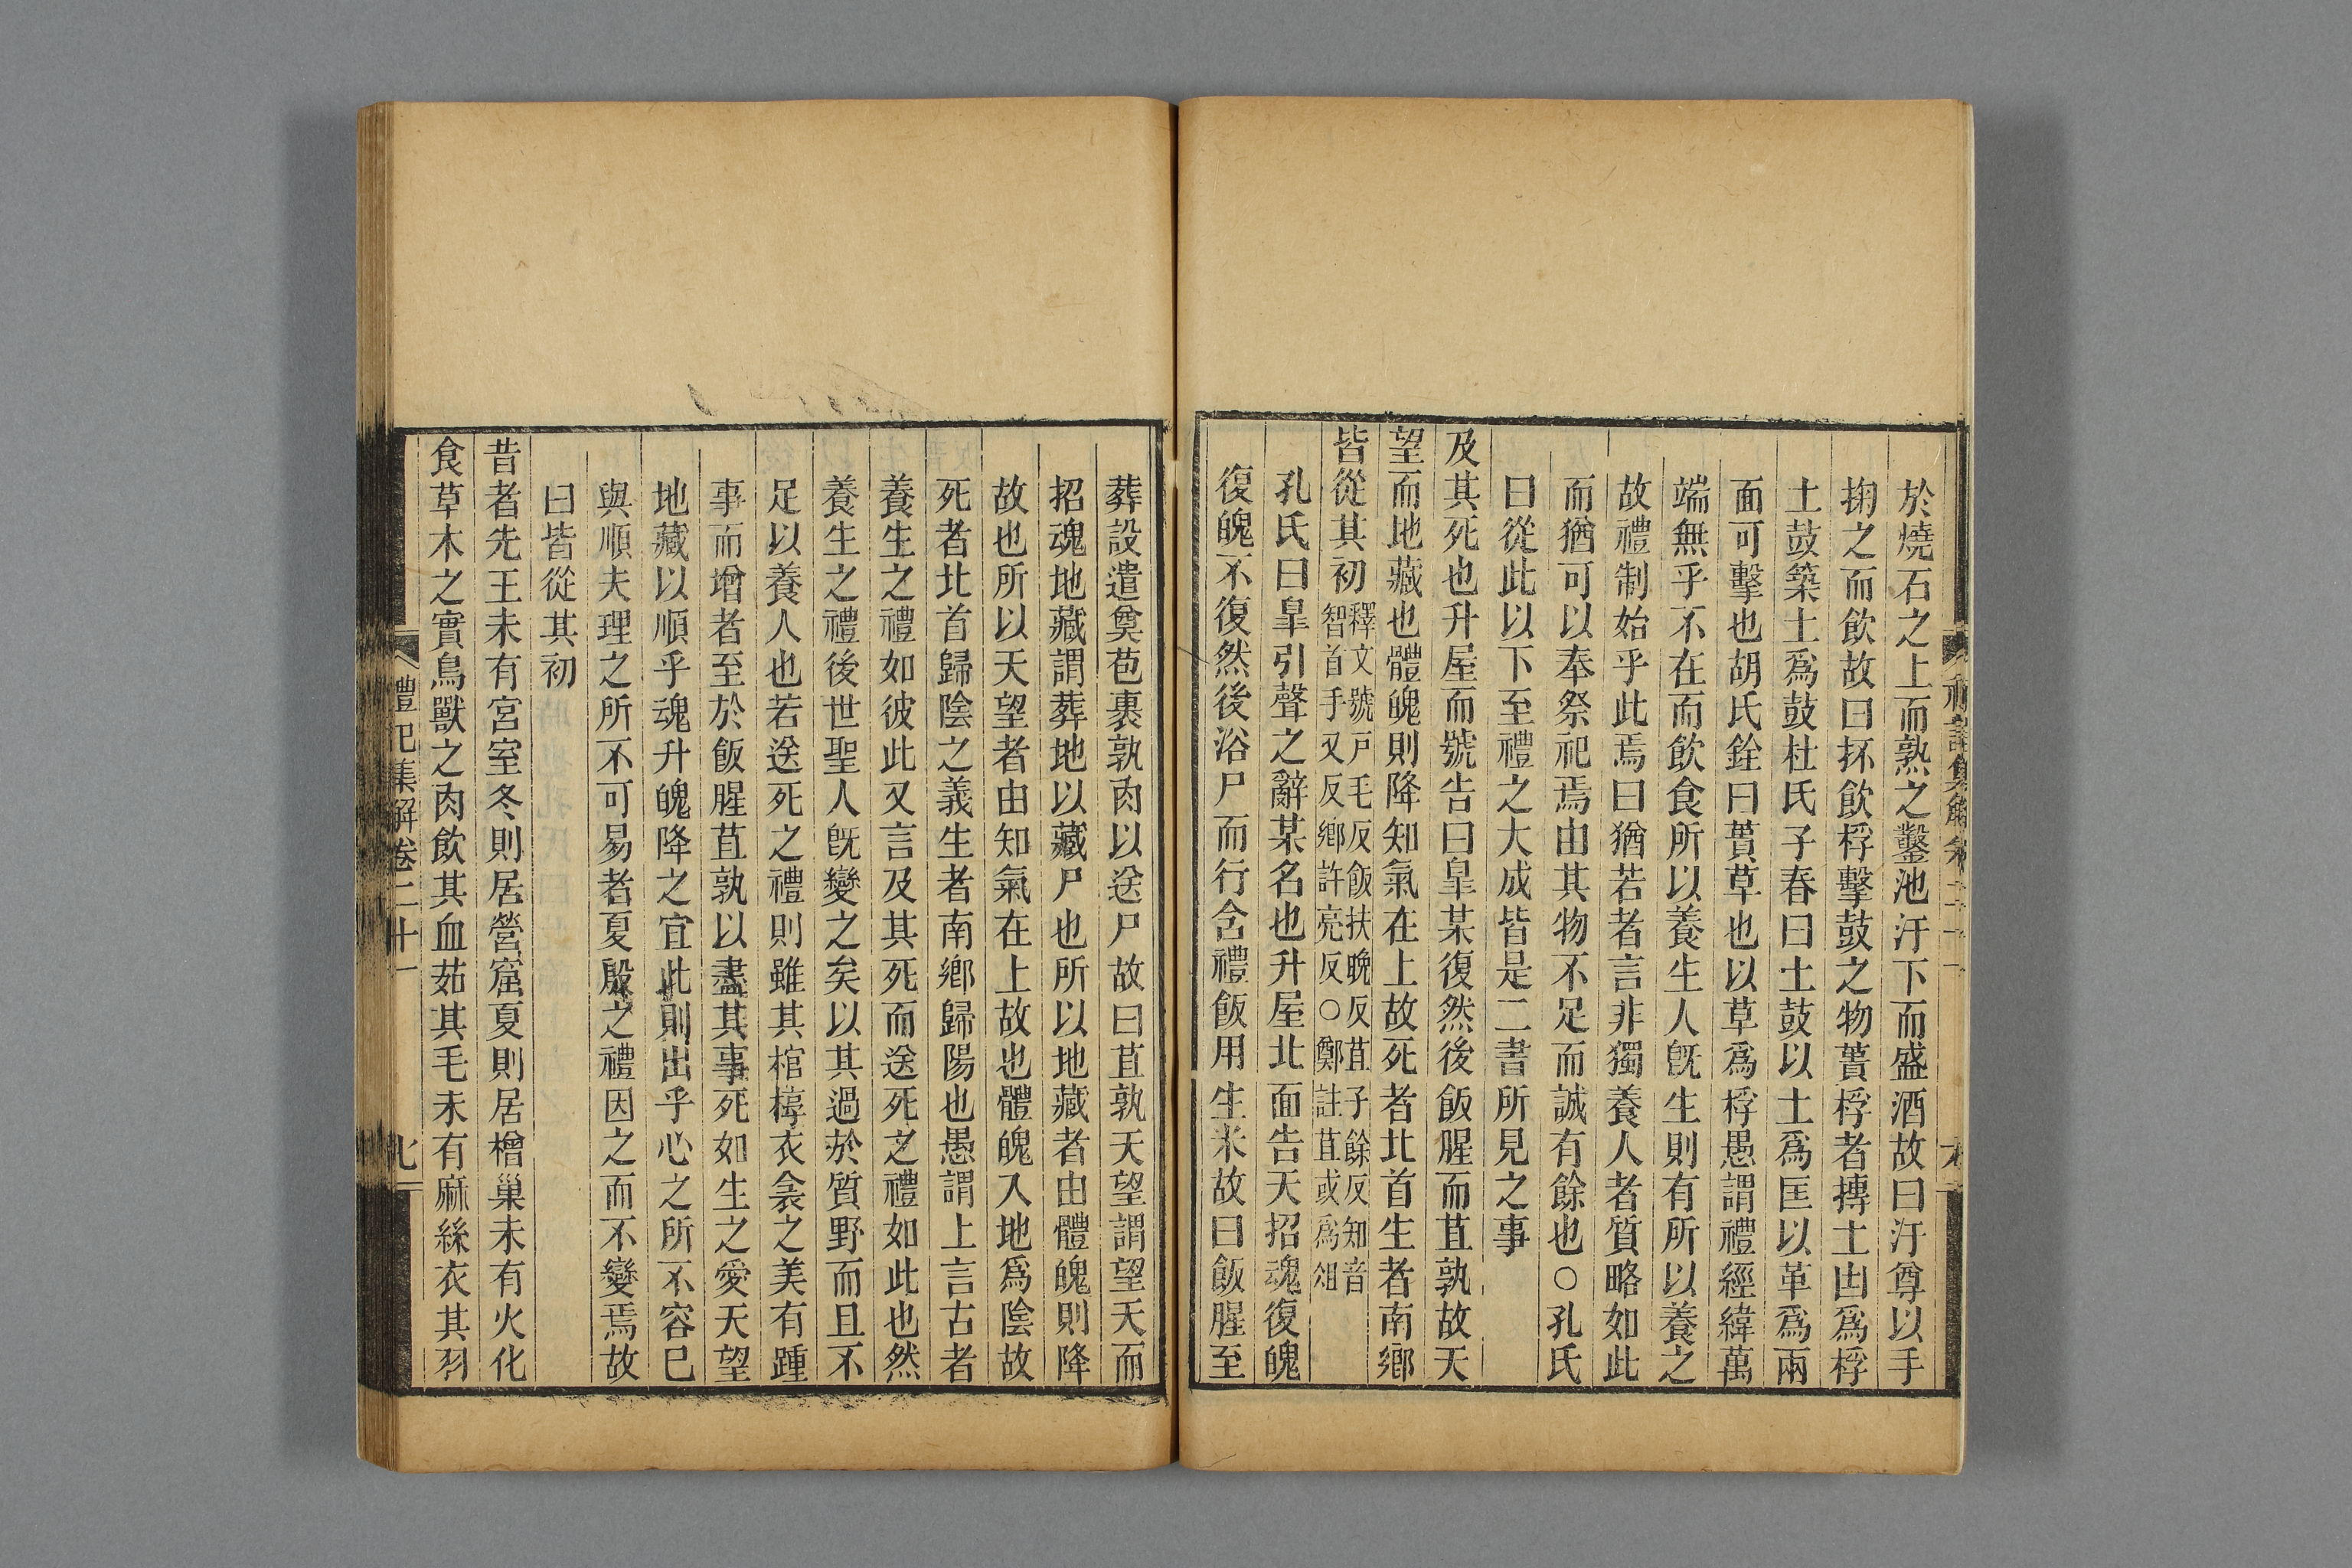 於燒石之上而熟之鑿池汙下而盛酒故曰汙尊以手
掬之而飲故曰抔飲桴擊鼓之物蕢桴者摶土凷爲桴
土鼓築土爲鼓杜氏子春曰土鼓以土爲匡以革爲兩
面可擊也胡氏銓曰蕢草也以草爲桴愚謂禮經緯萬
端無乎不在而飲食所以養生人旣生則有所以養之
故禮制始乎此焉曰猶若者言非獨養人者質略如此
而猶可以奉祭祀焉由其物不足而誠有餘也○孔氏
曰從此以下至禮之大成皆是二書所見之事
及其死也升屋而號告曰皐某復然後飯腥而苴孰故天
望而地藏也體魄則降知氣在上故死者北首生者南鄉
皆從其初釋文號戸毛反飯扶晚反苴子餘反知音
智首手又反鄉許亮反○鄭註苴或爲俎
孔氏曰皐引聲之辭某名也升屋北面告天招魂復魄
復魄不復然後浴尸而行含禮飯用生米故曰飯腥至
葬設遣奠苞裹孰肉以送尸故曰苴孰天望謂望天而
招魂地藏謂葬地以藏尸也所以地藏者由體魄則降
故也所以天望者由知氣在上故也體魄入地爲陰故
死者北首歸陰之義生者南鄉歸陽也愚謂上言古者
養生之禮如彼此又言及其死而送死之禮如此也然
養生之禮後世聖人旣變之矣以其過於質野而且不
足以養人也若送死之禮則雖其棺椁衣衾之美有踵
事而增者至於飯腥苴孰以盡其事死如生之愛天望
地藏以順乎魂升魄降之宜此則出乎心之所不容已
與順夫理之所不可易者夏殷之禮因之而不變焉故
曰皆從其初
昔者先王未有宮室冬則居營窟夏則居橧巢未有火化
食草木之實鳥獸之肉飲其血茹其毛未有麻絲衣其羽
禮記集解卷二十一